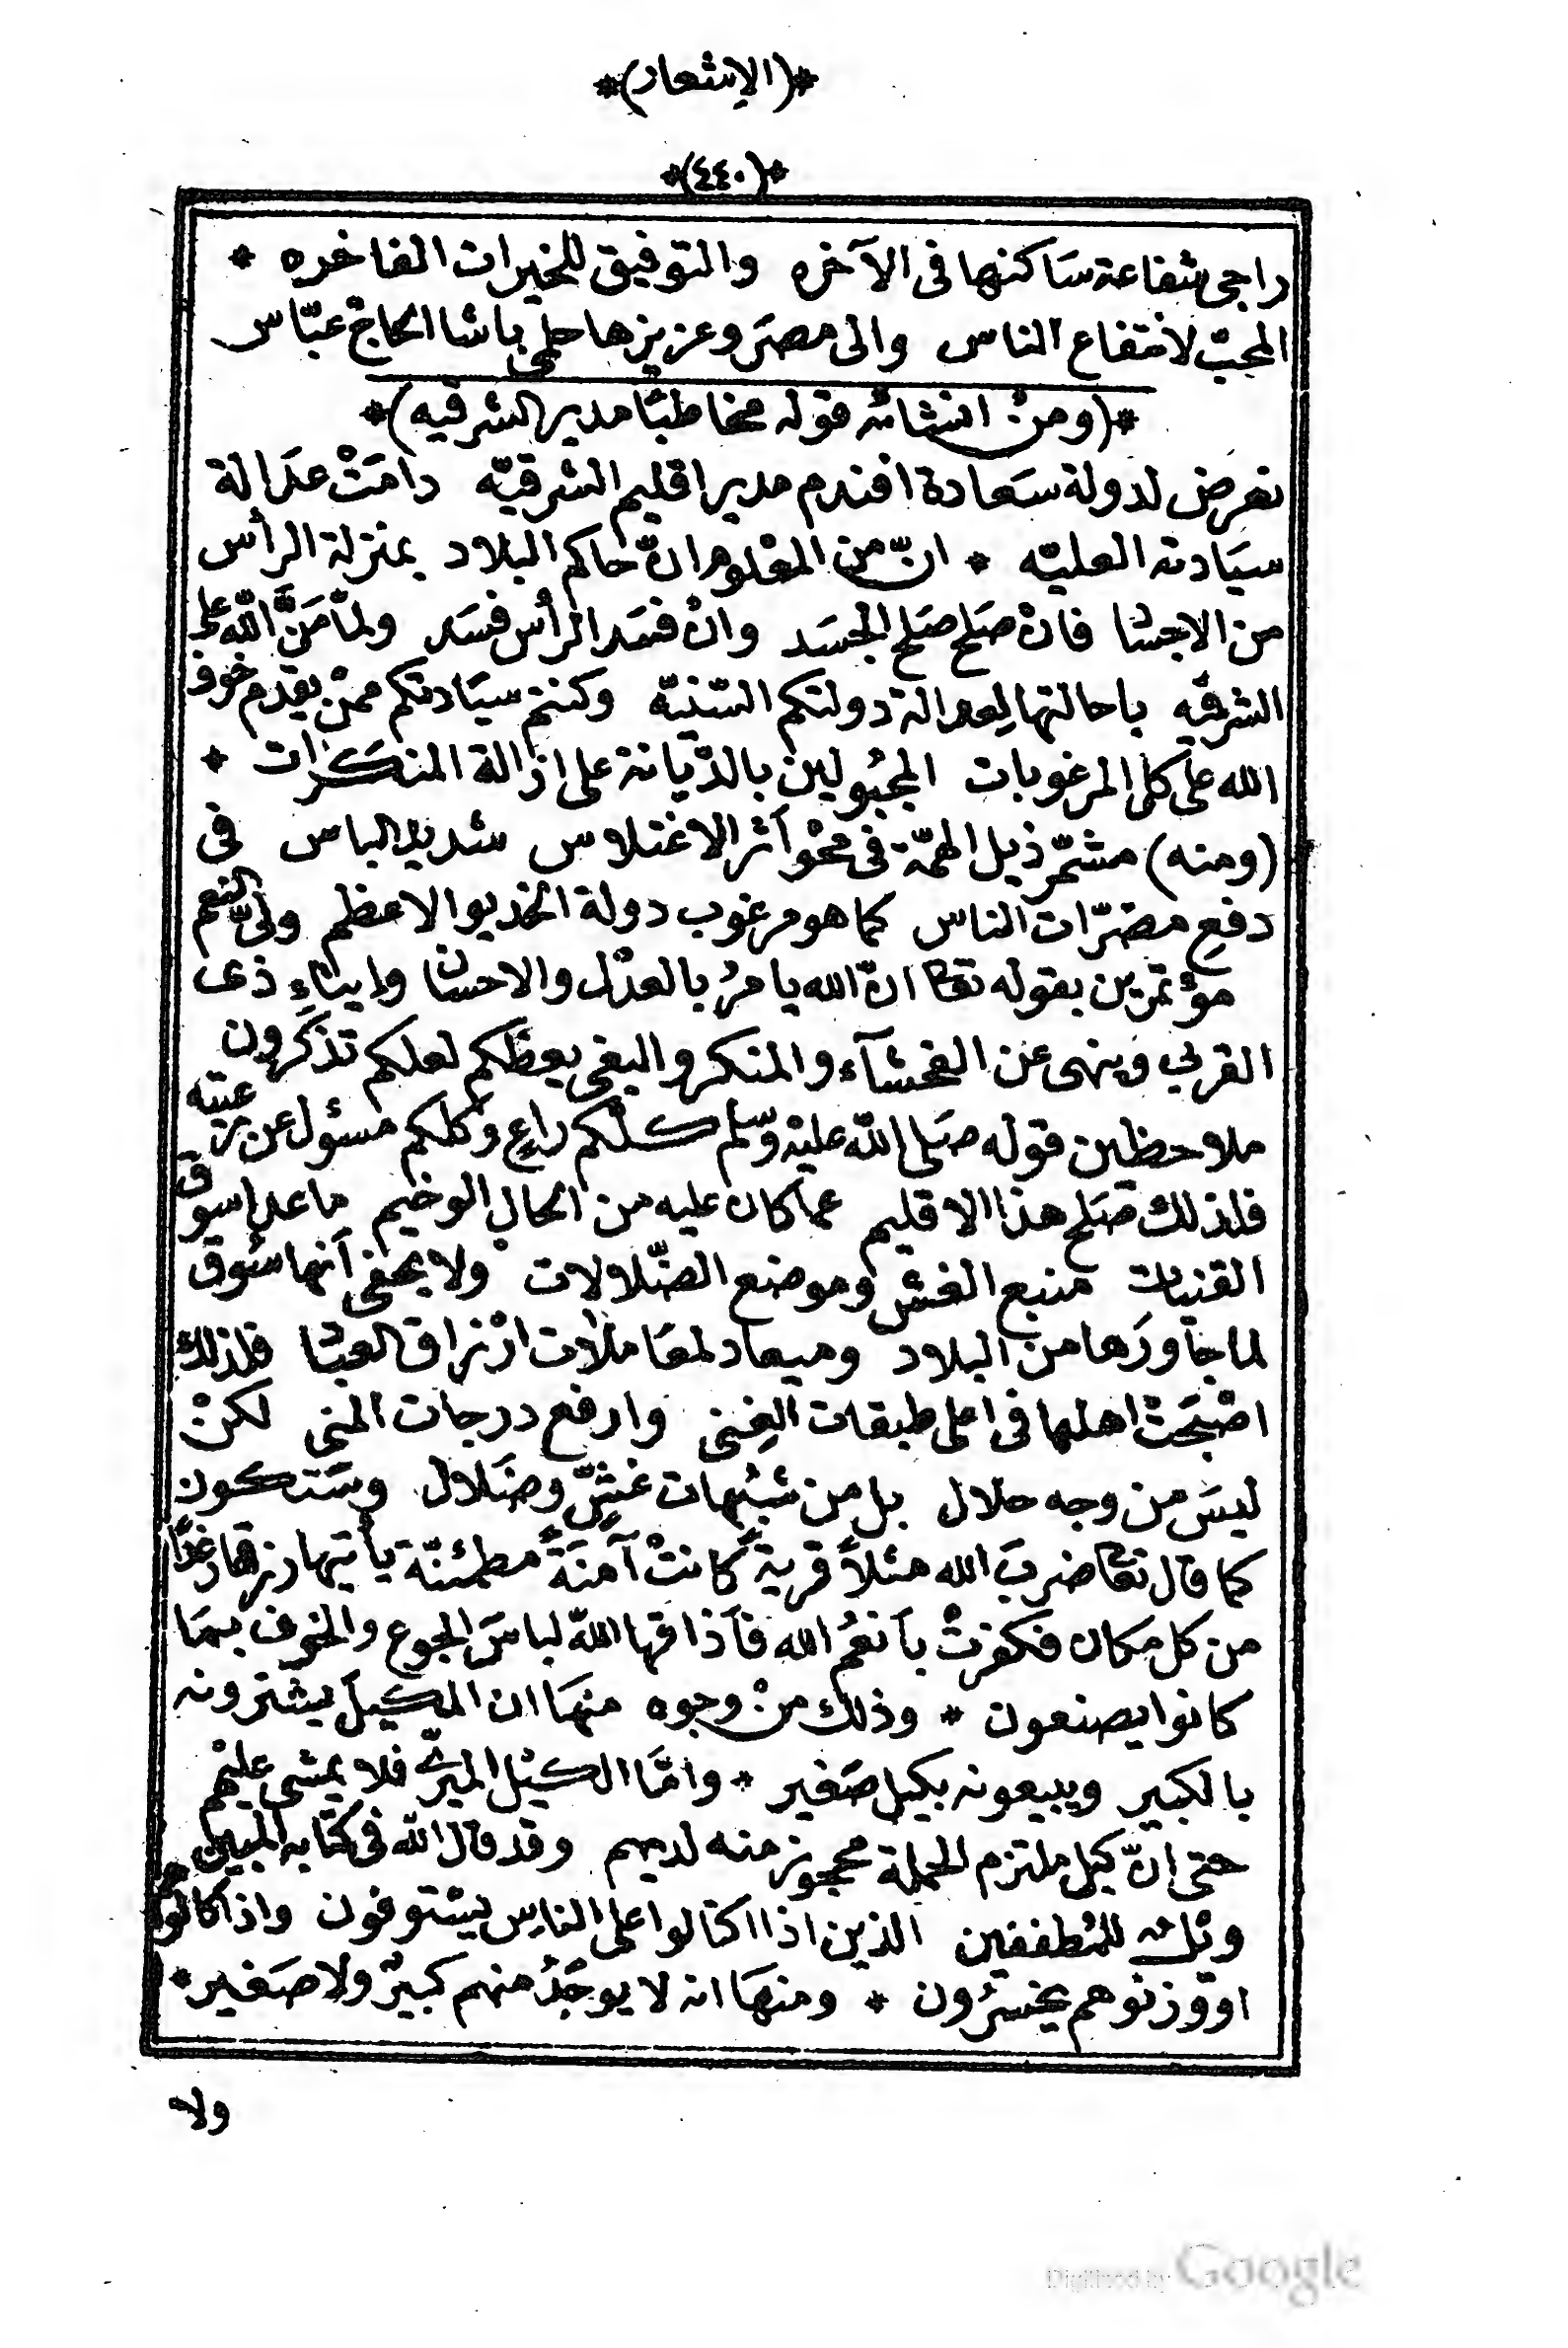 *(الإشعار)*
*(٤٤٠)*
راجى شفاعة سَاكنها فى الآخره والتوفيق للخيرات الفاخره *
المحبّ لانتفاع الناس والى مصَر وعزيزها حلمى باشا الحاجّ عبّاس
*(ومنْ انشائه قوله مخاطبًا مدير الشرقيه)*
نعرض لدولة سَعادة افندم مدير اقليم الشرقيّه دامَتْ عدالة
سيَادته العليّه * انّ من المعْلوم انّ حاكم البلاد بمنزلة الرأس
من الاجسَا فانْ صَلح صَلح الجسَد وانْ فسَد الرأس فسَد ولمّا مَنَّ اللّه على
الشرقيه باحالتها لعدالة دولتكم السّنيّه وكنتم سيَادتكم ممّنْ يقدم خوف
الله على كل المرغوبات المجبُولين بالدّيانة على ازالة المنكَرات *
(ومنه) مشمّر ذيل الهمّة فى محْو أثر الاغتلاس شديد الباس فى
دفع مضرّات الناس كما هو مرغوب دولة الخديو الاعظم ولىّ النعم
مؤتمرين بقوله تعا انّ الله يامرُ بالعدْل والاحسَان وايتاءِ ذى
القربى وينهى عن الفحشآء والمنكر والبغى يعظكم لعلكم تذكّرون
ملاحظين قوله صَلى اللّه عليْه وسّلم كلّكم راعٍ وكلكم مسئول عن رعيّته
فلذلك صَلح هذا الاقليم عما كان عليه من الحال الوخيم ماعدا سوق
القنيات منبع الغش وموضع الضّلالات ولا يخفى أنها سُوق
لما جاورَها من البلاد وميعاد لمعَاملات ارْزاق العبَا فلذلك
اصْبحَتْ اهلها فى اعلى طبقات الغِنى وارفع درجات المنى لكنْ
ليسَ من وجه حلال بل من شبُهات غشٍّ وضَلال وسَتكون
كما قال تعا ضربَ الله مثلاً قريةً كانتْ آمنَةً مطمئنّة يأتيها رزقها رغدًا
من كل مكان فكفرتْ بأنعُم الله فأذاقها اللّه لباسَ الجوع والخوف بمَا
كانوا يصنعون * وذلك منْ وجوه منهَا ان المكيلَ يشترونه
بالكبير ويبيعونه بكيل صَغير * وامّا الكيْل الميرىّ فلا يمشى عليْهم
حتى انّ كيل ملتزم الحملة محجوز منه لديهم وقد قال اللّه فى كتابه المبين
ويْل للمُطففين الذين اذا اكتالوا على الناسِ يسْتوفون واذا كالوهم
اووّزنوهم يخسرُون * ومنهَا انه لا يوجَدُ منهم كبيرٌ ولا صَغير *
ولا
Digitized by Google